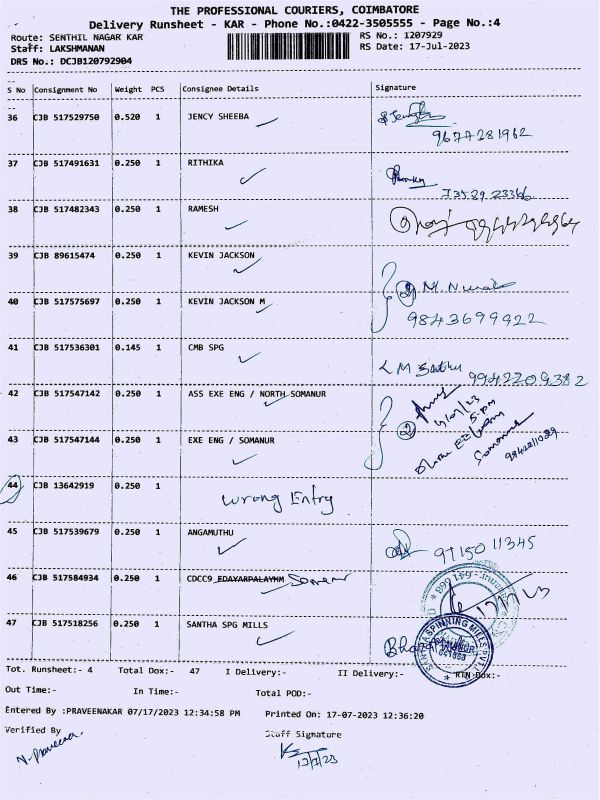 THE PROFESSIONAL COURIERS, COIMBATORE
Delivery Runsheet - KAR - Phone No.:0422-3505555 - Page No.:4
Route: SENTHIL NAGAR KAR RS No.: 1207929
Staff: LAKSHMANAN RS Date: 17-Jul-2023
DRS No.: DCJB120792904
S No Consignment No Weight PCS Consignee Details Signature
36 CJB 517529750 0.520 1 JENCY SHEEBA
9677281962
37 CJB 517491631 0.250 1 RITHIKA
73589 23366
38 CJB 517482343 0.250 1 RAMESH
39 CJB 89615474 0.250 1 KEVIN JACKSON
40 CJB 517575697 0.250 1 KEVIN JACKSON M
9843699922
41 CJB 517536301 0.145 1 CMB SPG
9942209382
42 CJB 517547142 0.250 1 ASS EXE ENG / NORTH SOMANUR
43 CJB 517547144 0.250 1 EXE ENG / SOMANUR
44 CJB 13642919 0.250 1 Wrong Entry
45 CJB 517539679 0.250 1 ANGAMUTHU
97150 11345
46 CJB 517584934 0.250 1 CDCC9 EDAYARPALAYNM
47 CJB 517518256 0.250 1 SANTHA SPG MILLS
Tot. Runsheet:- 4 Total Dox:- 47 I Delivery:- II Delivery:- RTN Dox:-
Out Time:- In Time:- Total POD:-
Entered By :PRAVEENAKAR 07/17/2023 12:34:58 PM Printed On: 17-07-2023 12:36:20
Verified By Staff Signature
N. Praveena